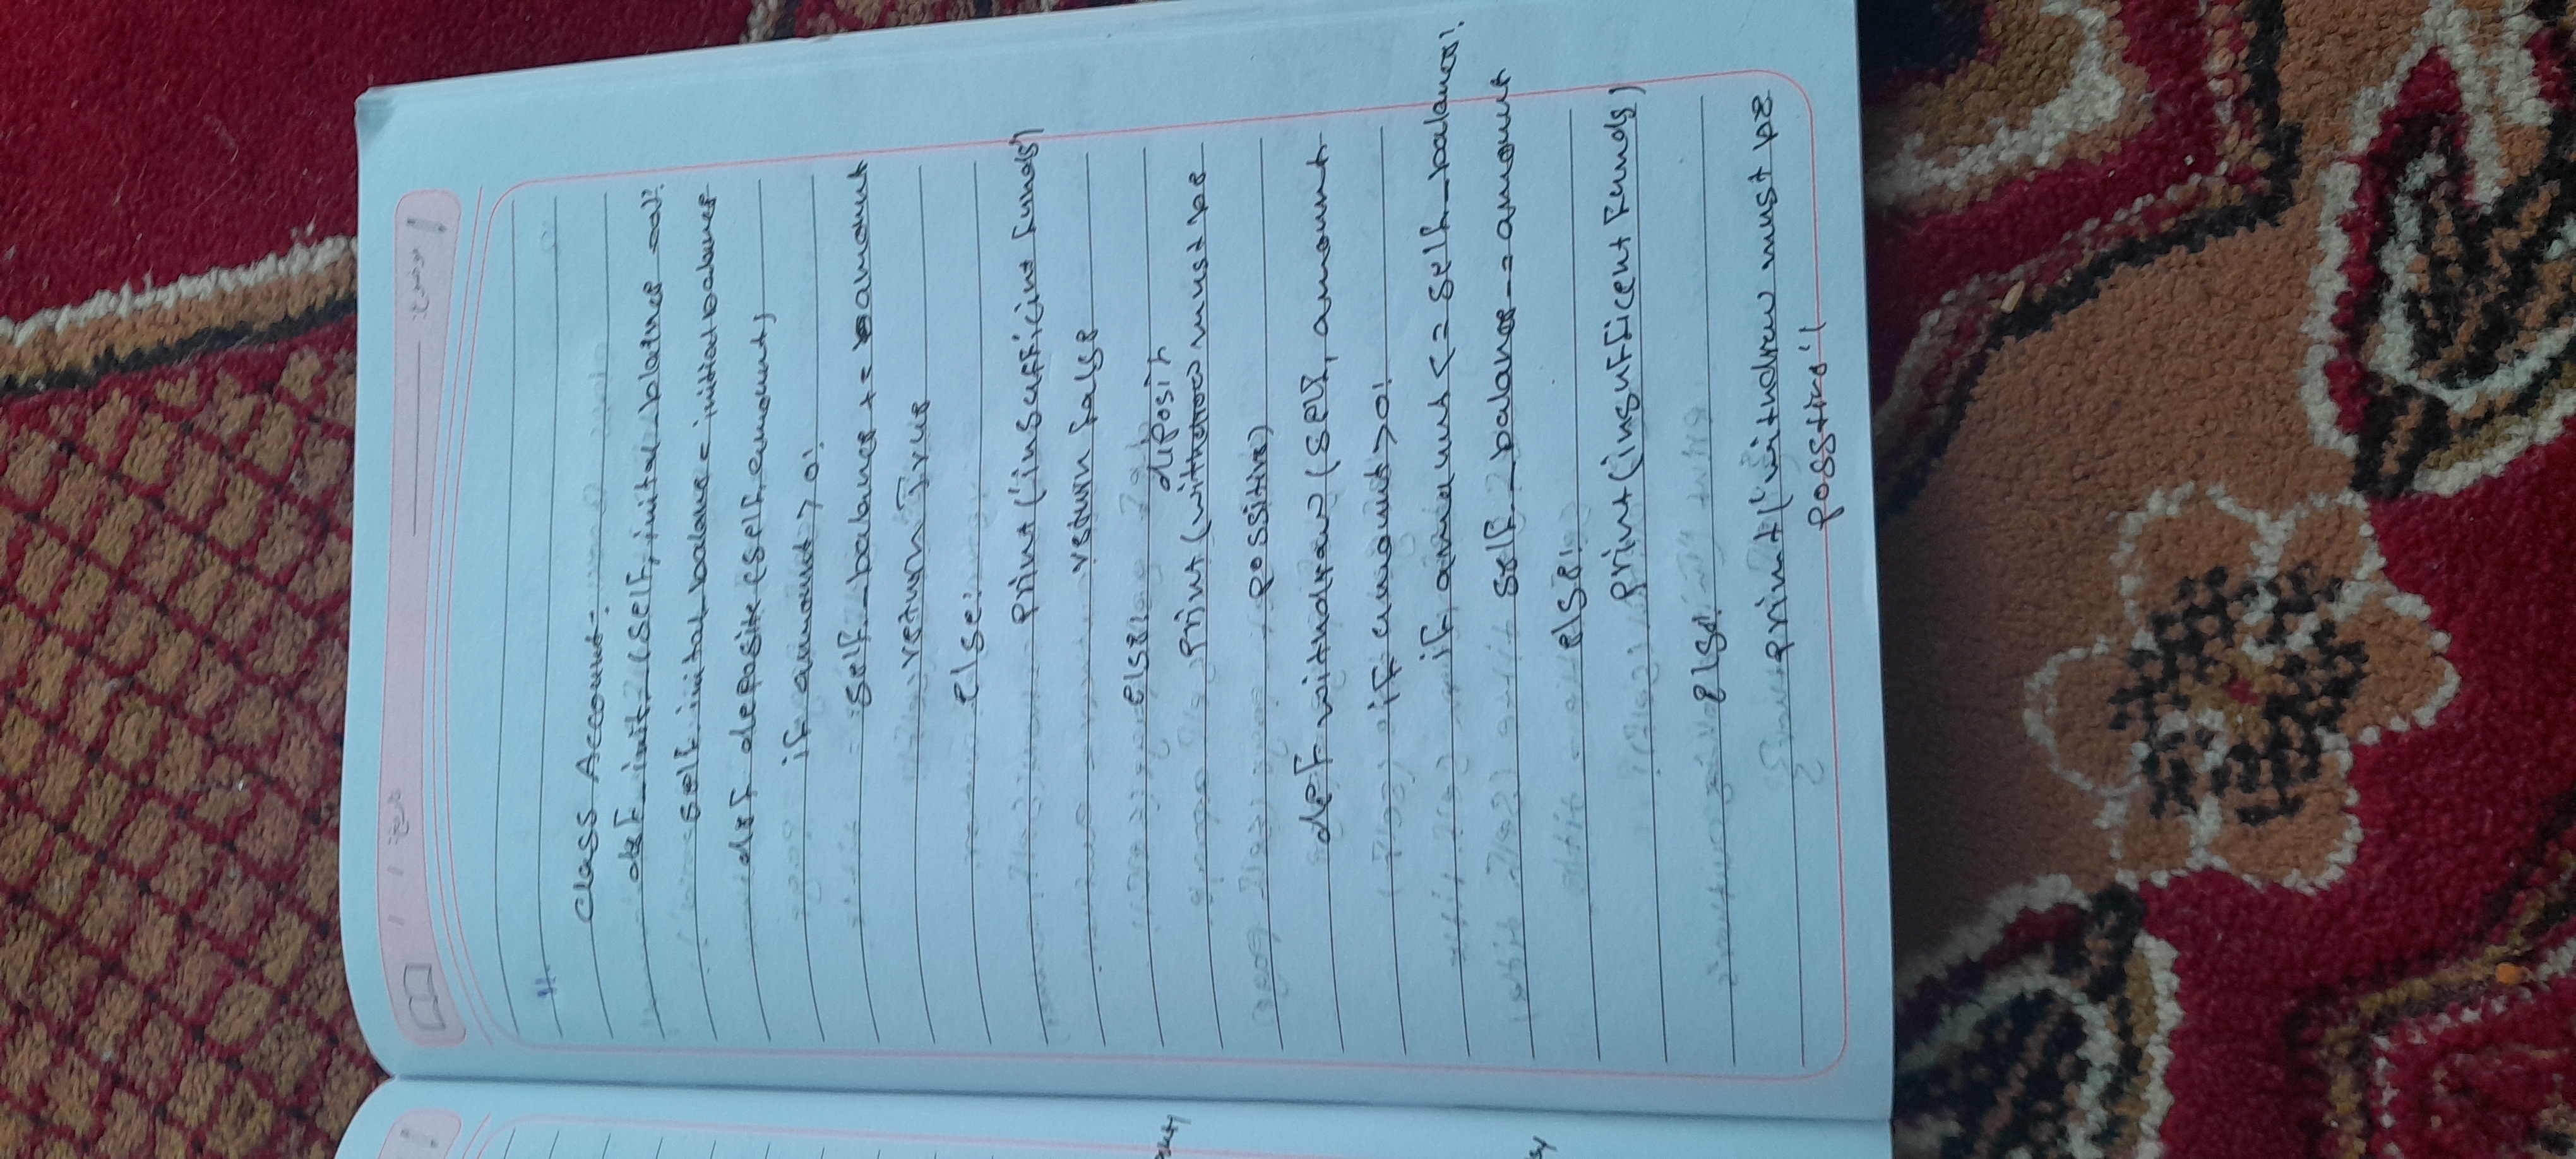 تاریخ: / / موضوع:
11.
class Account:
def _init_ (self, inital_balance =0):
self. inital_balanc = initial balance
def deposite (self, amount)
if amount > 0:
self_balance += amount
return True
else:
print ('insufficint Funds)
return false
else:
deposit
print (withdraw must be
possitive)
def withdraw (self, amount
if amount >0:
if amount <= self_balance:
self_balance -= amount
else:
print (insufficent Funds)
else:
print ('withdraw must be
posstive')